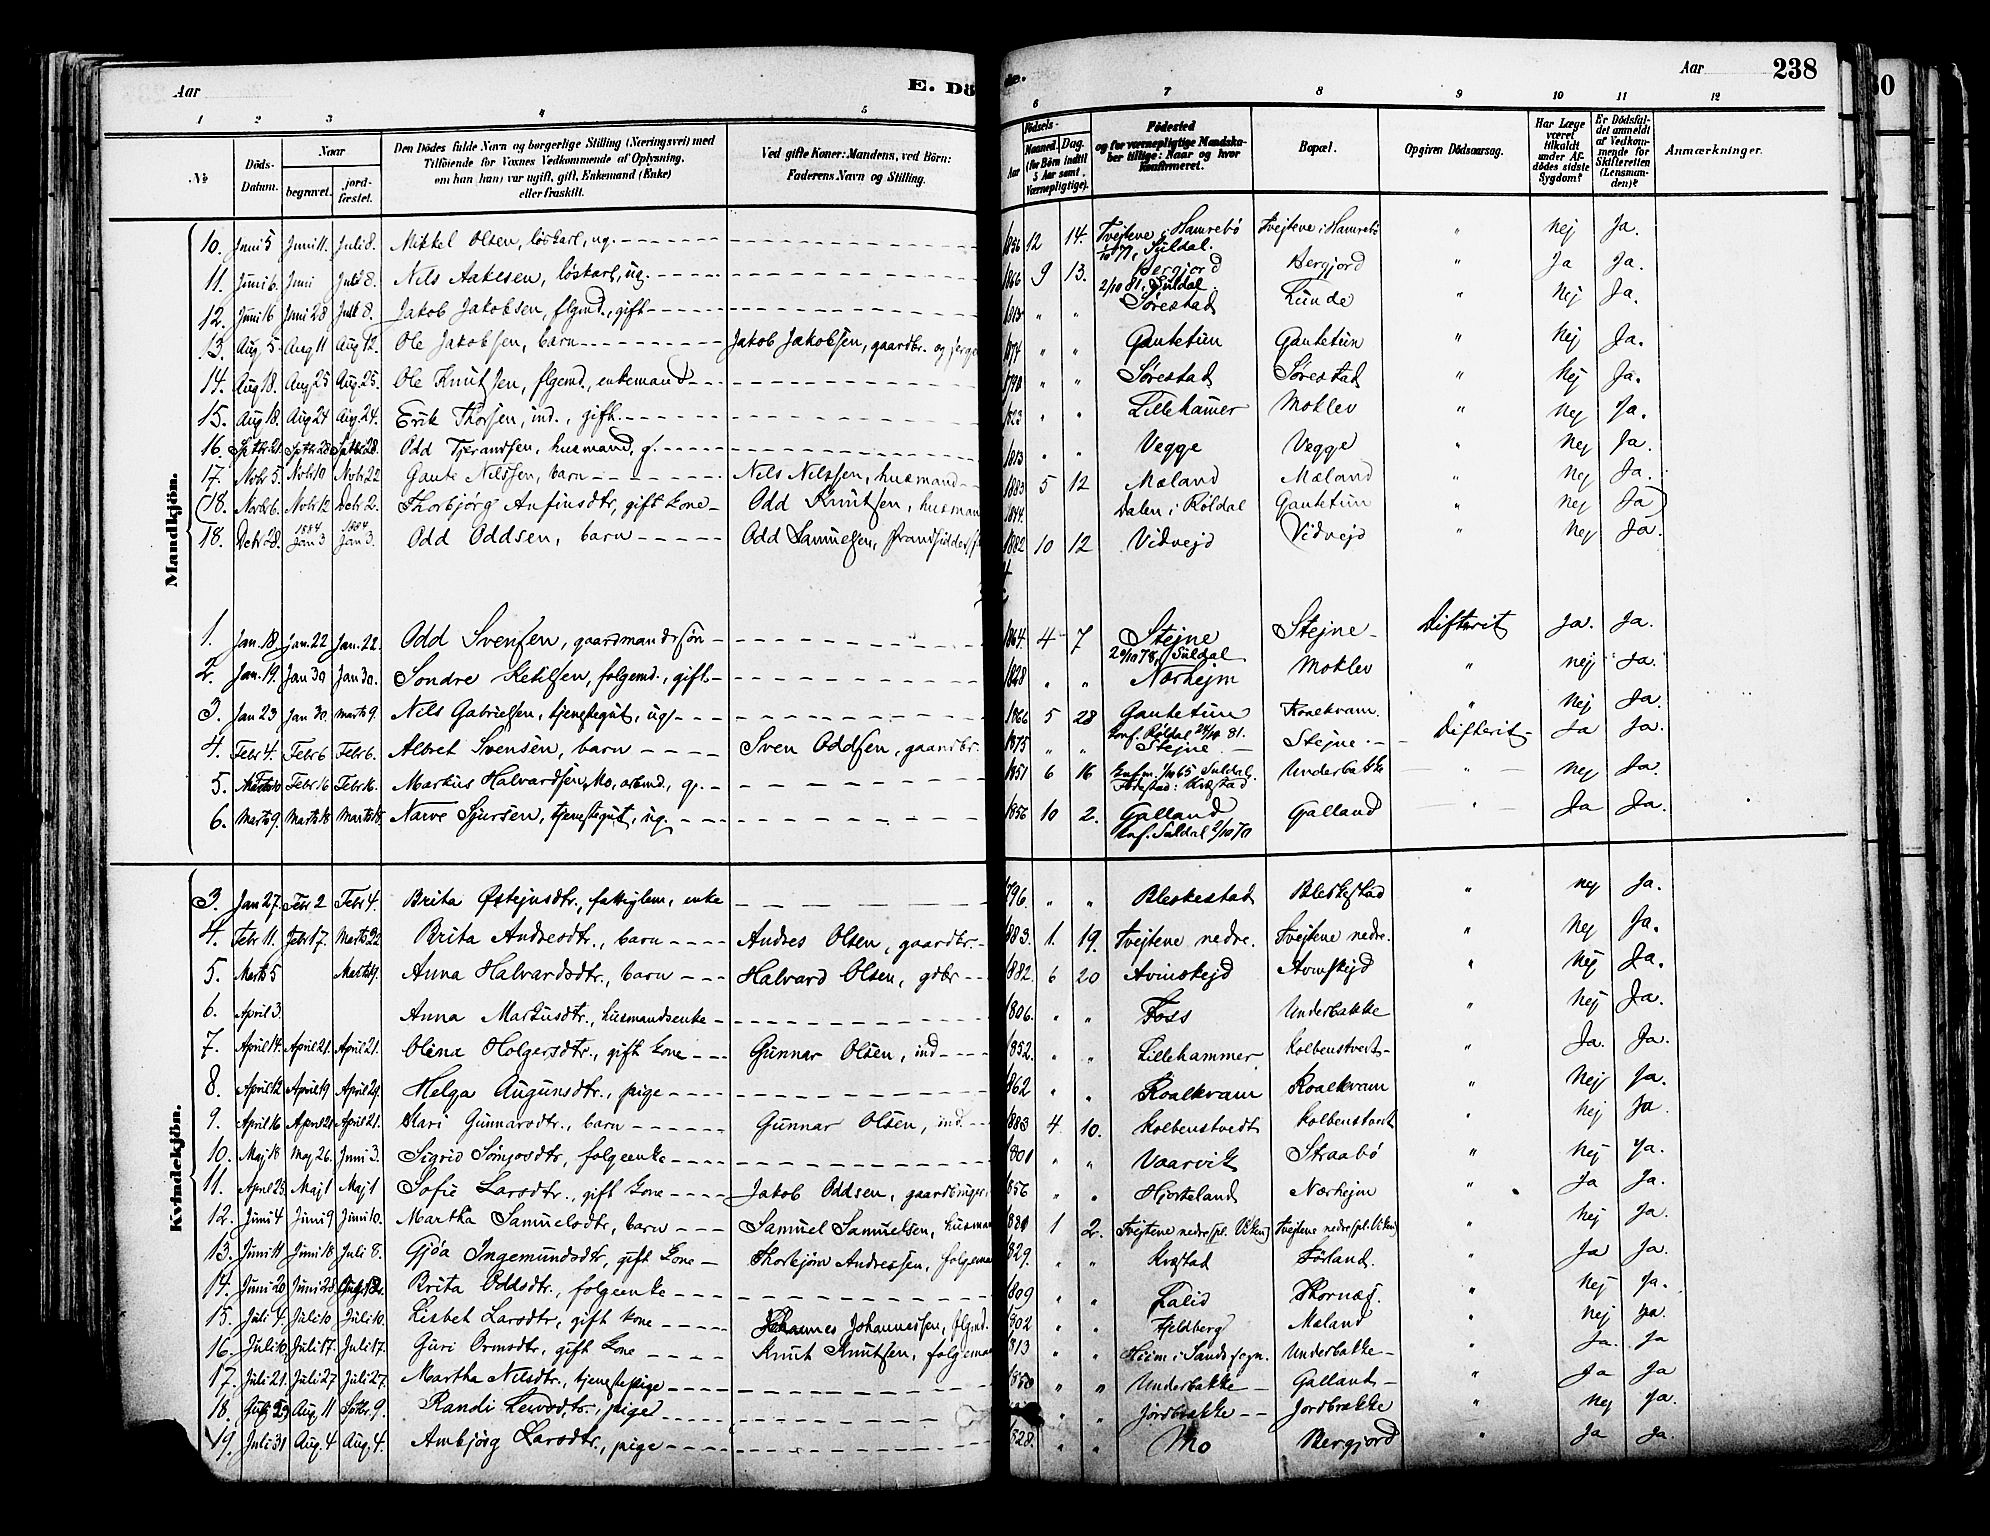 Aar
E. Dö
de.
Aar 238
1 2 3 4 5 6 7 8 9 10 11 12
№
Döds-Datum.
Naar
begravet.
jord-fæstet.
Den Dödes fulde Navn og borgerlige Stilling (Næringsvei) med
Tilföiende for Voxnes Vedkommende af Oplysning,
om han (hun) var ugift, gift, Enkemand (Enke)
eller fraskilt.
Ved gifte Koner: Mandens, ved Börn:
Faderens Navn og Stilling.
Födsels-
Aar
Maaned. Dag.
(for Börn indtil
5 Aar samt
Værnepligtige).
Födested
og for værnepligtige Mandska-
ber tillige: Naar og hvor
Konfirmeret.
Bopæl.
Opgiven Dödsaarsag.
Har Læge
været
tilkaldt
under Af-
dödes sidste
Sygdom?
Er Dödsfal-
det anmeldt
af Vedkom-
mende for
Skifteretten
(Lensman-
den)?
Anmærkninger.
Mandkjön.
10. Juni 5 Juni 11. Juli 8. Mikkel Olsen, löskarl, ug. 1856 12 14. Tvejtene i Hamrebö Suldal. Tvejtene i Hamrebö " Nej Ja.
11. Juni 6. Juni Juli 8. Nils Aakesen, löskarl, ug. 1866 9 13. Bergjord 2/10 81, Suldal. Bergjord " Ja Ja.
12. Juni 16 Juni 28 Juli 8. Jakob Jakobsen, flgmd., gift 1813 " " Sørestad Lunde " Nej Ja.
13. Aug. 5 Aug 11 Aug 12. Ole Jakobsen, barn Jakob Jakobsen, gaardbr. og 1874 " " Gautetun Gautetun " Nej Ja.
14. Aug 18. Aug 25 Aug. 25. Ole Knutsen, flgmd., enkemand 1790 " " Sørestad Sørestad " Nej Ja.
15. Aug 18. Aug 24 Aug. 24. Erik Thorsen, ind., gift. 1823 " " Lillehamer Moklev " Nej Ja.
16. Sptbr 21. Sptbr 28 Sptbr 28. Odd Tjerandsen, husmand, g. 1813 " " Vegge Vegge " Nej Ja.
17. Novbr 5. Novbr 10 Novbr 22 Gaute Nilssen, barn Nils Nilssen, husmand 1883 5 12 Mæland Mæland " Nej Ja.
(18. Novbr 6. Novbr 12 Decbr 2. Thorbjørg Anfinsdtr, gift kone Odd Knutsen, husman 1844. Dalen i Röldal Gautetun " Nej Ja)
18. Decbr 28. 1884 Jan 3 1884 Jan 3. Odd Oddsen, barn Odd Samuelsen, 1882 10 12 Vidvejd Vidvejd " Nej Ja.
1. Jan. 18. Jan. 22 Jan. 22. Odd Svensen, gaardmandssön 1864. 4 7 Stejne 20/10 78, Suldal Stejne Difterit Ja. Ja.
2. Jan. 19. Jan 30 Jan 30. Sondre Ketilsen, folgemd., gift 1828 " " Nærhejm Moklev " Nej Ja.
3. Jan 23 Jan 30. Marts 9. Nils Gabrielsen, tjenestegut, ug. 1866 5 28 Gautetun Konf. Röldal 81. Roalkvam. " Nej Ja.
4. Febr 4. Febr 6 Febr 6. Albret Svensen, barn Sven Oddsen, gaardbr. 1875 " " Stejne Stejne. Difterit Ja Ja.
5. Febr 16 Febr 16. Markus Halvardsen, Mo, g. 1851 6 16 65 Suldal. Födestad: Kvæstad Underbakke " Nej Ja.
6. Marts 9. Marts 18 Marts 18. Narve Sjursen, tjenestegut, ug. 1856 10 2. Galland Konf. Suldal 2/10 70 Galland " Ja Ja.
Kvindekjön.
3. Jan 27. Febr 2 Febr 4. Brita Östejnsdtr., fattiglem, enke 1796. " " Bleskestad Bleskestad " Nej Ja.
4. Febr 11. Febr 17. Marts 22 Brita Andresdtr., barn Andres Olsen, gaardbr. 1883. 1. 19. Tvejtene nedre. Tvejtene nedre. " Nej Ja.
5. Marts 5 Marts 9. Anna Halvardsdtr., barn Halvard Olsen, gdbr 1882. 6 20 Avinskejd Avinskejd " Nej Ja.
6. April 3. Anna Markusdtr., husmandsenke 1806. " " Foss Underbakke " Nej Ja.
7. April 14. April 21. April 21. Olina Holgersdtr., gift kone Gunnar Olsen, ind 1852. " " Lillehammer Kolbenstvedt " Ja. Ja.
8. April 12 April 19 April 29. Helga Augunsdtr., pige 1862 " " Roalkvam Roalkvam " Nej Ja.
9. April 16 April 21 April 21. Kari Gunnarsdtr., barn Gunnar Olsen, ind. 1883 4 10. Kolbenstvedt Kolbenstvedt " Nej Ja
10. Maj 18 Maj 26. Juni 3. Sigrid folgeenke 1801 " " Vaarvik Straabö " Nej Ja.
11. April 23. Maj 1 Maj 1 Sofie Larsdtr., gift kone Jakob Oddsen, gaardbruger. 1856 " " Hjorteland Nærhejm " Ja Ja.
12. Juni 4 Juni 9 Juni 10. Martha Samuelsdtr, barn Samuel Samuelsen, husman 1880 1 2. Tvejtene nedre (pl. Viken) Tvejtene nedre (pl. Viken) " Nej Ja.
13. Juni 11 Juni 18 Juli 8. Gjöa Ingemundsdtr, gift kone Thorbjörn Andreassen, folgeman 1829. " " Kvæstad Förland. " Ja Ja.
14. Juni 20 Juni 28 Brita Oddsdtr., folgeenke 1809 " " Lalid " Nej Ja.
15. Juli 4. Juli 10. Juli 10. Lisbet Larsdtr, gift kone Johannes Johannessen, flgmd. 1802 " " Fjeldberg Mæland " Nej Ja.
16. Juli 10. Juli 17. Juli 17. Guri Ormsdtr, gift kone Knut Knutsen, folgeman 1813 " " Heim i Sandssogn. Underbakke " Ja. Ja
17. Juli 21. Juli 27 Juli 27. Martha Nilsdtr., tjenestepige 1850 " " Underbakke Galland " Ja Ja
18. Juli 29 Aug. 11 Sptbr. 9. Randi pige " " Jordbrække Jordbrække " Nej Ja.
19. Juli 31 Aug. 4 Aug. 4. Ambjörg Larsdtr., pige 1828. " " Mo Bergjord " Ja Ja.